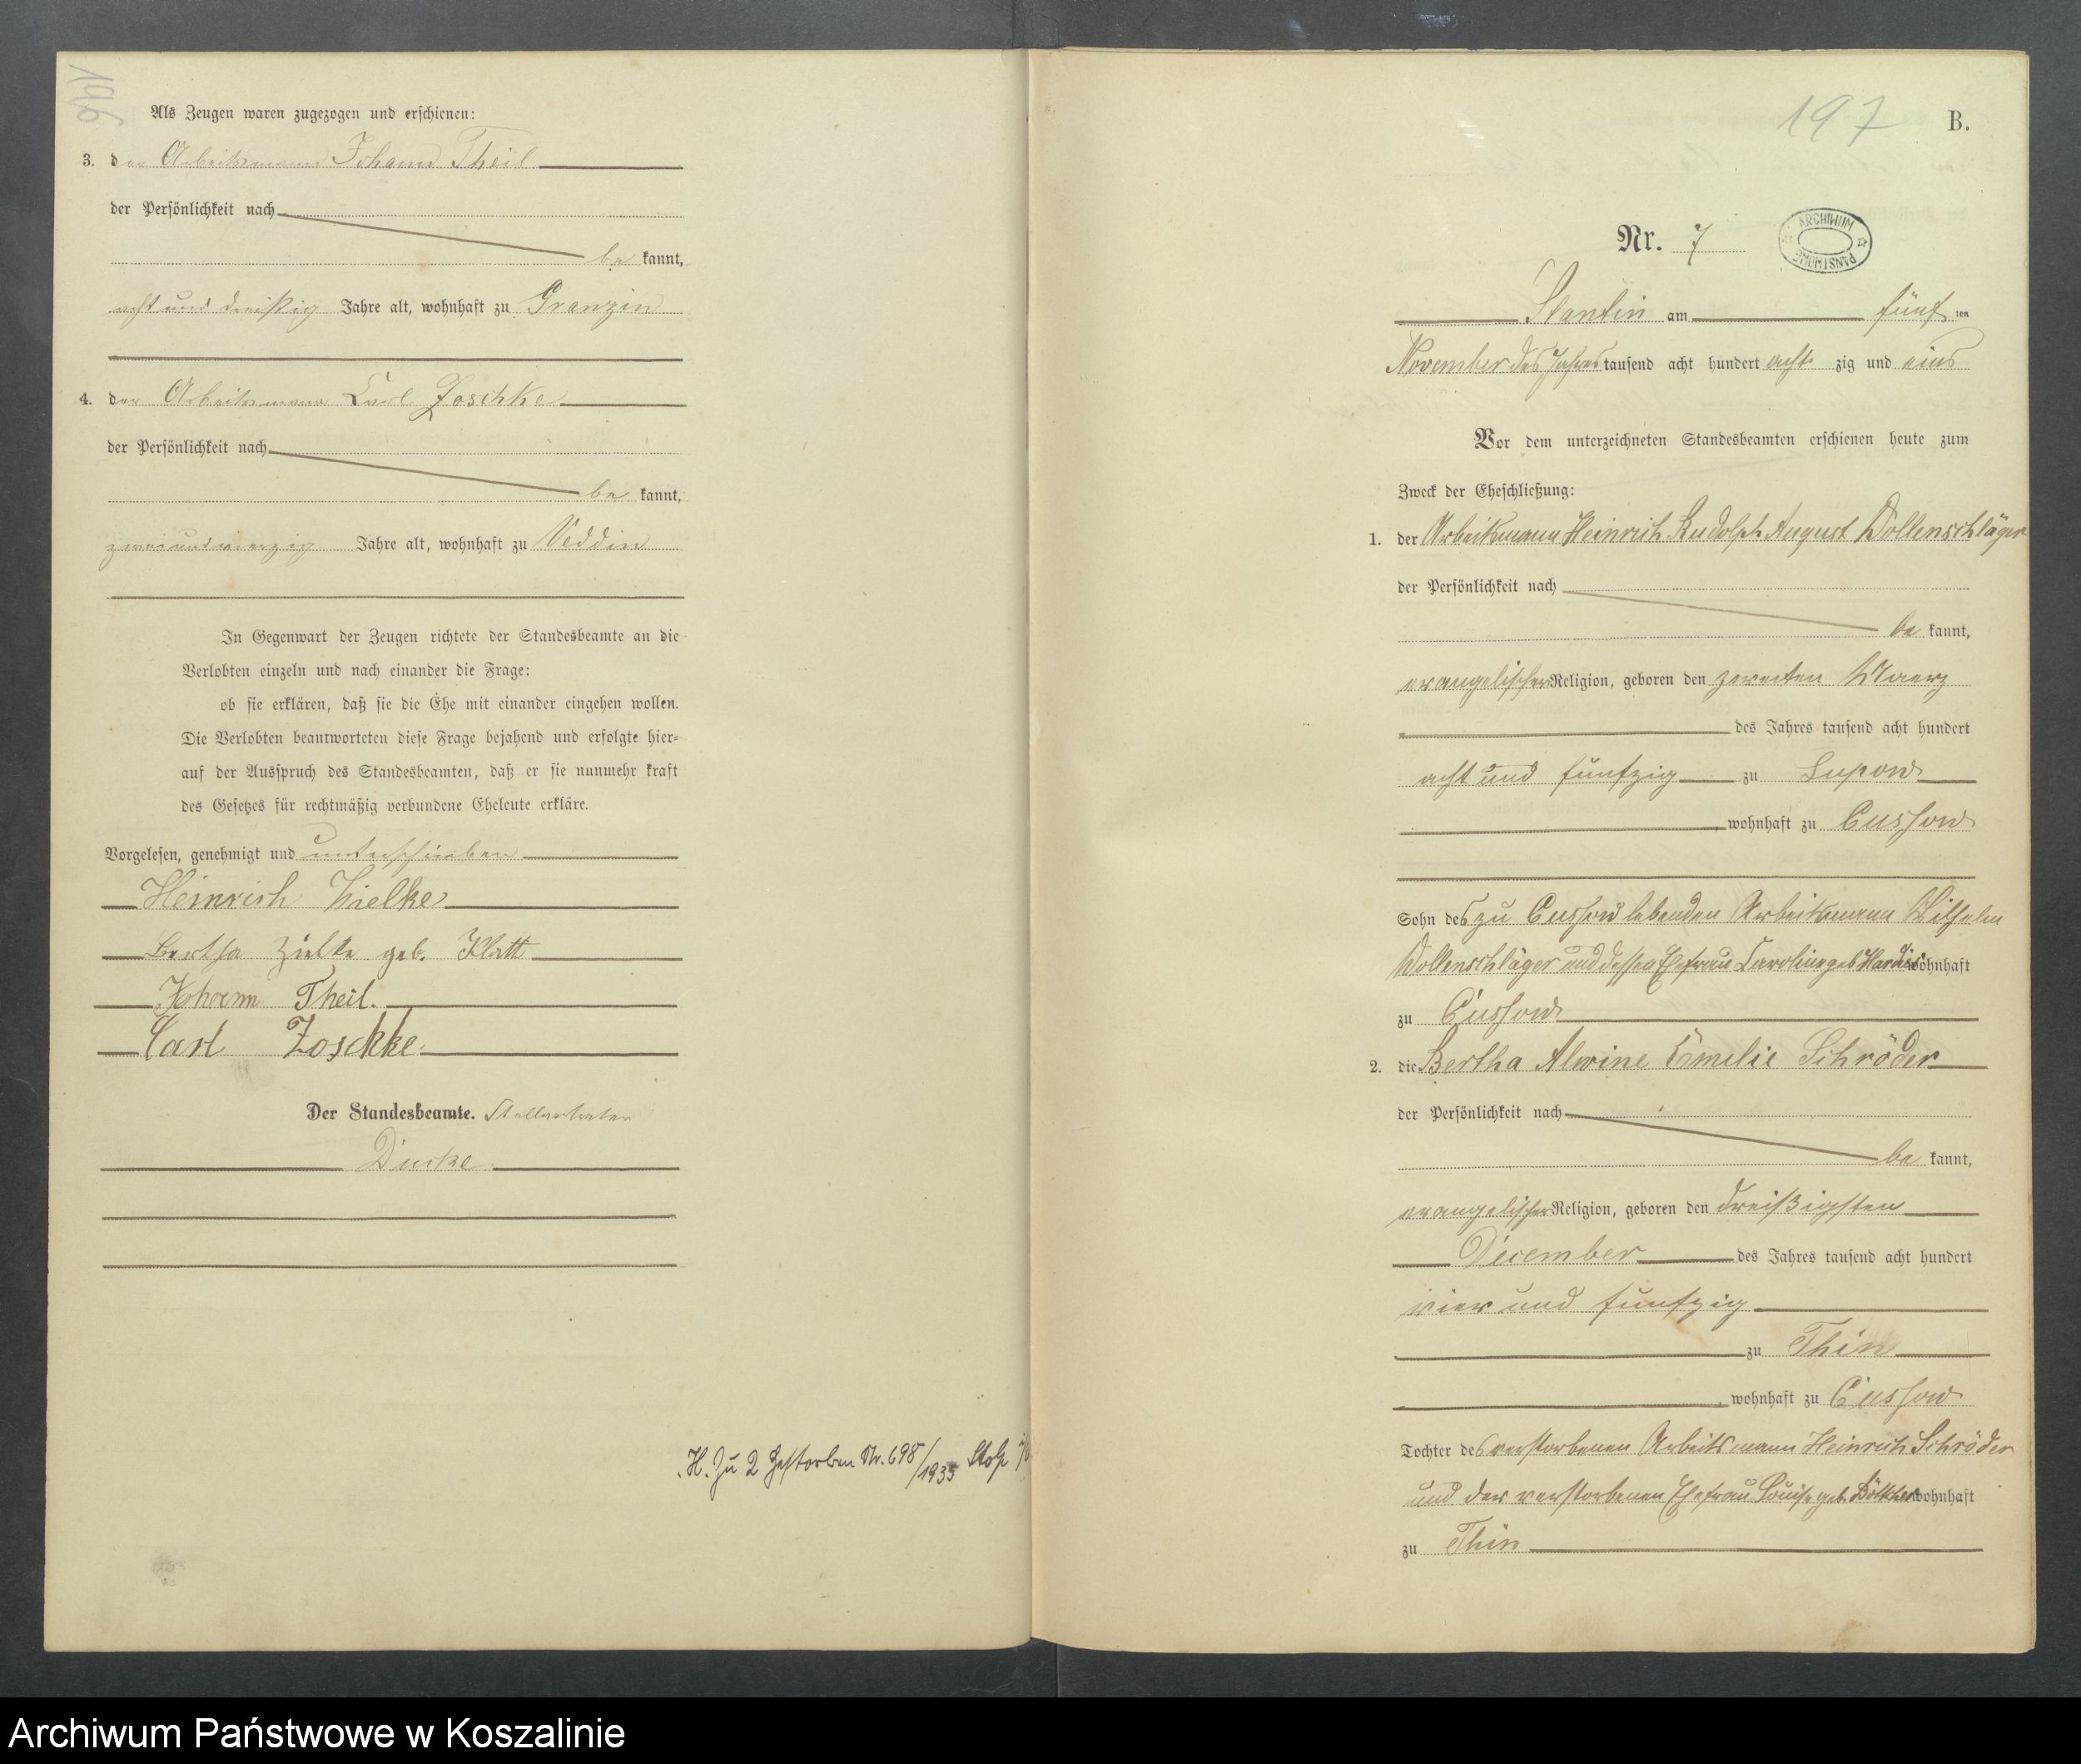 196
Als Zeugen waren zugezogen und erschienen:
3. der Arbeitsmann Johann Theil
der Persönlichkeit nach
be kannt,
acht und dreißig Jahre alt, wohnhaft zu Granzin
4. der Arbeitsmann Carl Zoschke
der Persönlichkeit nach
be kannt,
zweiundvierzig Jahre alt, wohnhaft zu Veddin
In Gegenwart der Zeugen richtete der Standesbeamte an die
Verlobten einzeln und nach einander die Frage:
ob sie erklären, daß sie die Ehe mit einander eingehen wollen.
Die Verlobten beantworteten diese Frage bejahend und erfolgte hier-
auf der Ausspruch des Standesbeamten, daß er sie nunmehr kraft
des Gesetzes für rechtmäßig verbundene Eheleute erkläre.
Vorgelesen, genehmigt und unterschrieben
Heinrich Zielke
Bertha Zielke geb. Klatt
Johann Theil.
Carl Zoschke
Der Standesbeamte. Stellvertreter
H. Zu 2 Gestorben Nr. 698/1935 Stolp
197
B.
Nr. 7
ARCHIWUM PAŃSTWOWE
Stantin am fünf ten
November des Jahres tausend acht hundert acht zig und eins
Vor dem unterzeichneten Standesbeamten erschienen heute zum
Zweck der Eheschließung:
1. der Arbeitsmann Heinrich Rudolph August Wollenschläger
der Persönlichkeit nach
be kannt,
evangelischer Religion, geboren den zweiten Maerz
des Jahres tausend acht hundert
acht und fünfzig zu Lupow
, wohnhaft zu Cussow
Sohn des zu Cussow lebenden Arbeitsmann Wilhelm
Wollenschläger und dessen Ehefrau Caroline geb wohnhaft
zu Cussow
2. die Bertha Alwine Emelie Schröder
der Persönlichkeit nach
be kannt,
evangelischer Religion, geboren den dreißigsten
December des Jahres tausend acht hundert
vier und funfzig
zu Thin
, wohnhaft zu Cussow
Tochter des verstorbenen Arbeitsmann Heinrich Schröder
und der verstorbenen Ehefrau Louise geb. Böttcher wohnhaft
zu Thin
Archiwum Państwowe w Koszalinie